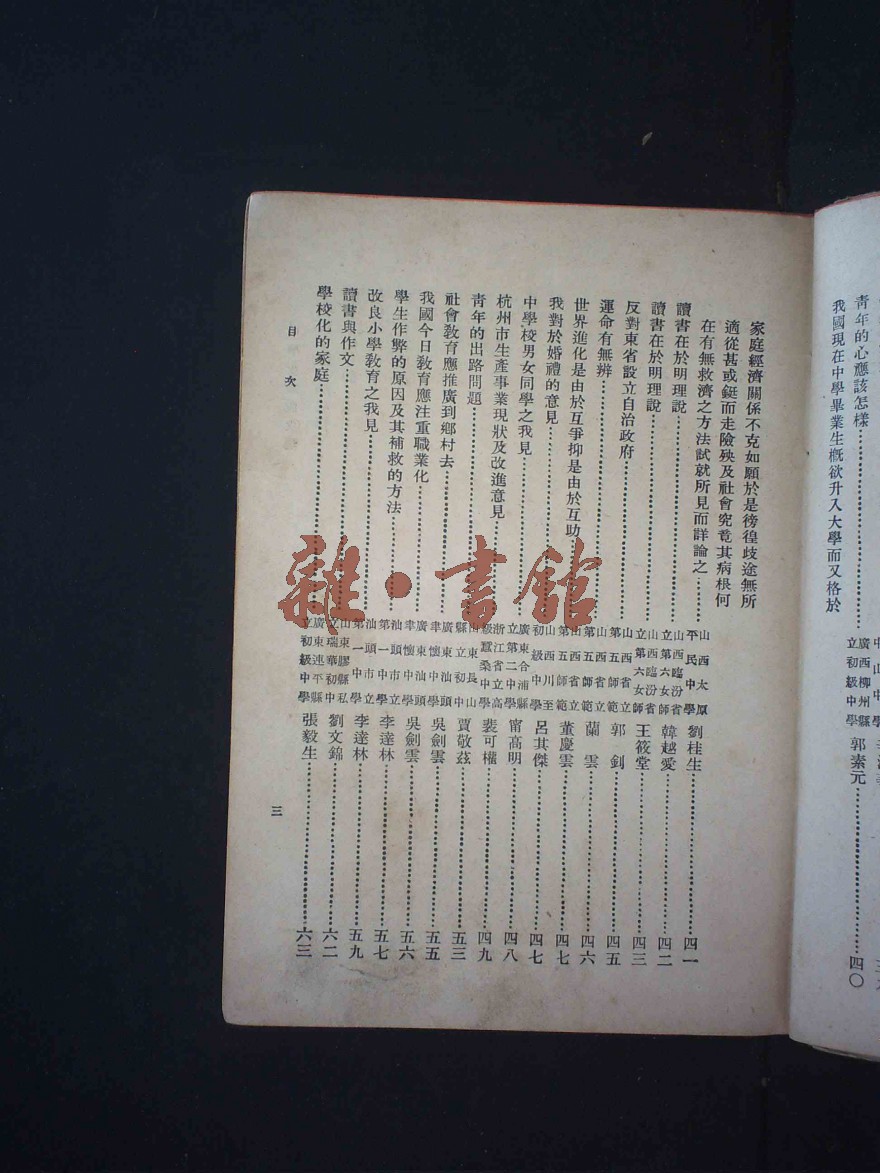 青年的心應該怎樣
我國現在中學畢業生概欲升入大學而又格於
廣西柳州縣立初級中學 郭素元 四〇
家庭經濟關係不克如願於是徬徨歧途無所
適從甚或鋌而走險殃及社會究竟其病根何
在有無救濟之方法試就所見而詳論之 山西太原平民中學 劉桂生 四一
讀書在於明理說 山西臨汾省立第六女師 韓越愛 四二
讀書在於明理說 山西臨汾省立第六女師 王筱堂 四三
反對東省設立自治政府 山西省立第五師範 郭釗 四五
運命有無辨 山西省立第五師範 蘭雲 四六
世界進化是由於互爭抑是由於互助 山西省立第五師範 董慶雲 四七
我對於婚禮的意見 山西川至初級中學 呂其傑 四七
中學校男女同學之我見 廣東合浦縣立第二中學 甯高明 四八
杭州市生產事業現狀及改進意見 浙江省立高級蠶桑中學 裴可權 四九
青年的出路問題 山東長山縣立初中 賈敬茲 五三
社會教育應推廣到鄉村去 廣東汕頭聿懷中學 吳劍雲 五五
我國今日教育應注重職業化 廣東汕頭聿懷中學 吳劍雲 五六
學生作弊的原因及其補救的方法 汕頭市立第一中學 李達林 五七
改良小學教育之我見 汕頭市立第一中學 李達林 五九
讀書與作文 山東膠縣私立瑞華初中 劉文錦 六二
學校化的家庭 廣東連平縣立初級中學 張毅生 六三
目次
三
雜·書館